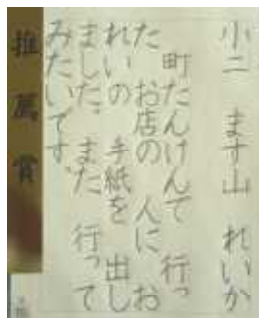 小二 ます山 れいか
町たんけんで 行っ
た お店の 人に お
れいの 手紙を 出し
ました。また 行って
みたいです。
推薦賞